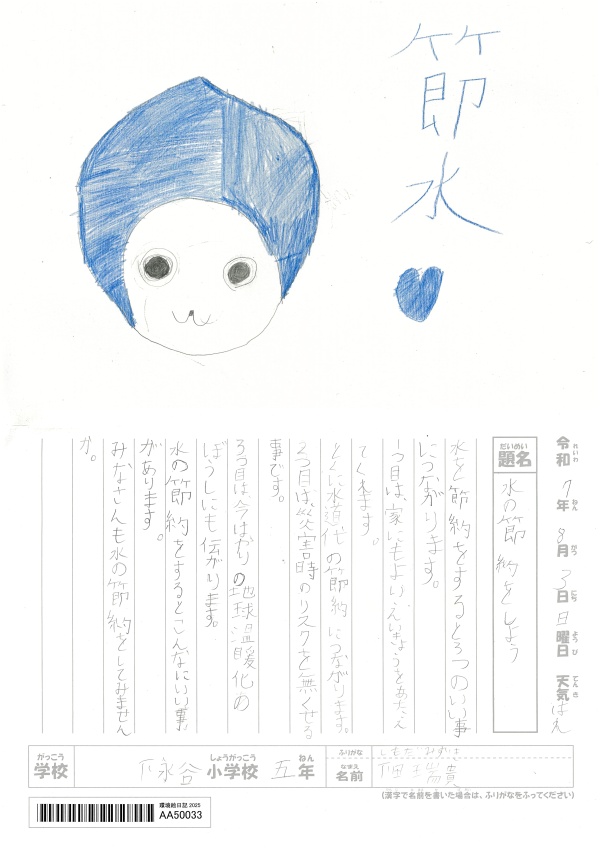 節水
令和7年8月3日日曜日 天気はれ
れいわ ねん がつ にち ようび てんき
だいめい
題名 水の節約をしよう
水を節約をすると3つのいい事
につながります。
1つ目は、家にもよいえいきょうをあたえ
てくれます。
とくに水道代の節約につながります。
2つ目は、災害時のリスクを無くせる
事です。
3つ目は今ばかりの地球温暖化の
ぼうしにも伝がります。
水の節約をするとこんなにいい事
があります。
みなさんも水の節約をしてみません
か。
がっこう しょうがっこう ねん ふりがな
学校 下永谷小学校 五年
なまえ
名前 瑞貴
(漢字で名前を書いた場合は、ふりがなをふってください)
環境絵日記 2025
AA50033